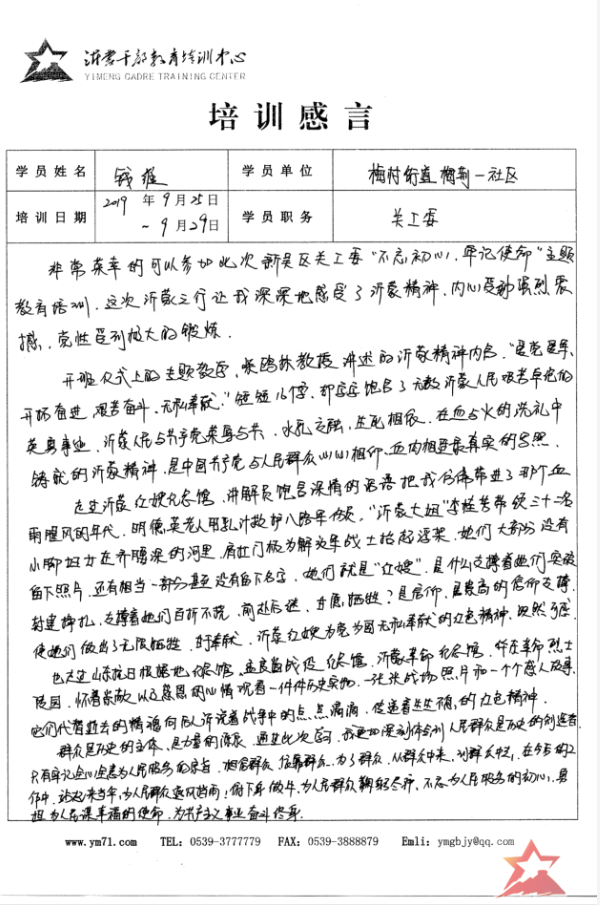 沂蒙干部教育培训中心
YIMENG CADRE TRAINING CENTER
培训感言
学员姓名 钱 学员单位 梅村街道梅荆一社区
培训日期 2019年9月25日 ~9月29日 学员职务 关工委
非常荣幸的可以参加此次新吴区关工委"不忘初心,牢记使命"主题
教育培训,这次沂蒙之行让我深深地感受了沂蒙精神,内心受到强烈震
撼,党性受到极大的锻炼。
开班仪式上的主题教育,教授讲述的沂蒙精神内含,"爱党爱军、
开拓奋进、艰苦奋斗、无私奉献。"短短16字,却字字饱含了无数沂蒙人民艰苦卓绝的
英勇事业,沂蒙人民与共产党荣辱与共、水乳交融、生死相依,在血与火的洗礼中
铸就的沂蒙精神,是中国共产党与人民群众心心相印、血肉相连最真实的写照
走进沂蒙红嫂纪念馆,讲解员饱含深情的话语把我们带进了那个血
雨腥风的年代,明德英老人用乳汁救护八路军伤员,"沂蒙大姐"李桂芳带领三十二名
小脚妇女在齐腰深的河里,肩扛门板为解放军战士抬起浮桥,她们大部分没有
留下照片,还有相当一部分甚至没有留下名字,她们就是"红嫂",是什么支撑着她们突破
封建 ,支撑着她们百折不挠,前赴后继,甘愿牺牲?是信仰,是崇高的信仰支撑
使她们做出了无限牺牲 奉献,沂蒙红嫂为党为国无私奉献的红色精神,
也走进山东抗日根据地纪念馆、孟良崮战役纪念馆、沂蒙革命纪念馆、华东革命烈士
陵园,怀着崇敬 的心情观看一件件历史实物、一张张战场照片和一个个感人故事,
他们代替逝去的 向我们诉说着战争中的点点滴滴,传递着生生不息的红色精神。
群众是历史的主体,是力量的源泉,通过此次 ,我更加深刻体会到人民群众是历史的创造者
只有牢记全心全意为人民服务的宗旨,相信群众、依靠群众、为了群众,从群众中来,到群众中去,在今后的工
作中, 为人民群众遮风挡雨!俯下身做牛,为人民群众鞠躬尽瘁,不忘为人民服务的初心,勇
担为人民谋幸福的使命,为共产主义事业奋斗终身。
www.ym71.com TEL: 0539-3777779 FAX: 0539-3888879 Emli: ymgbjy@qq.com